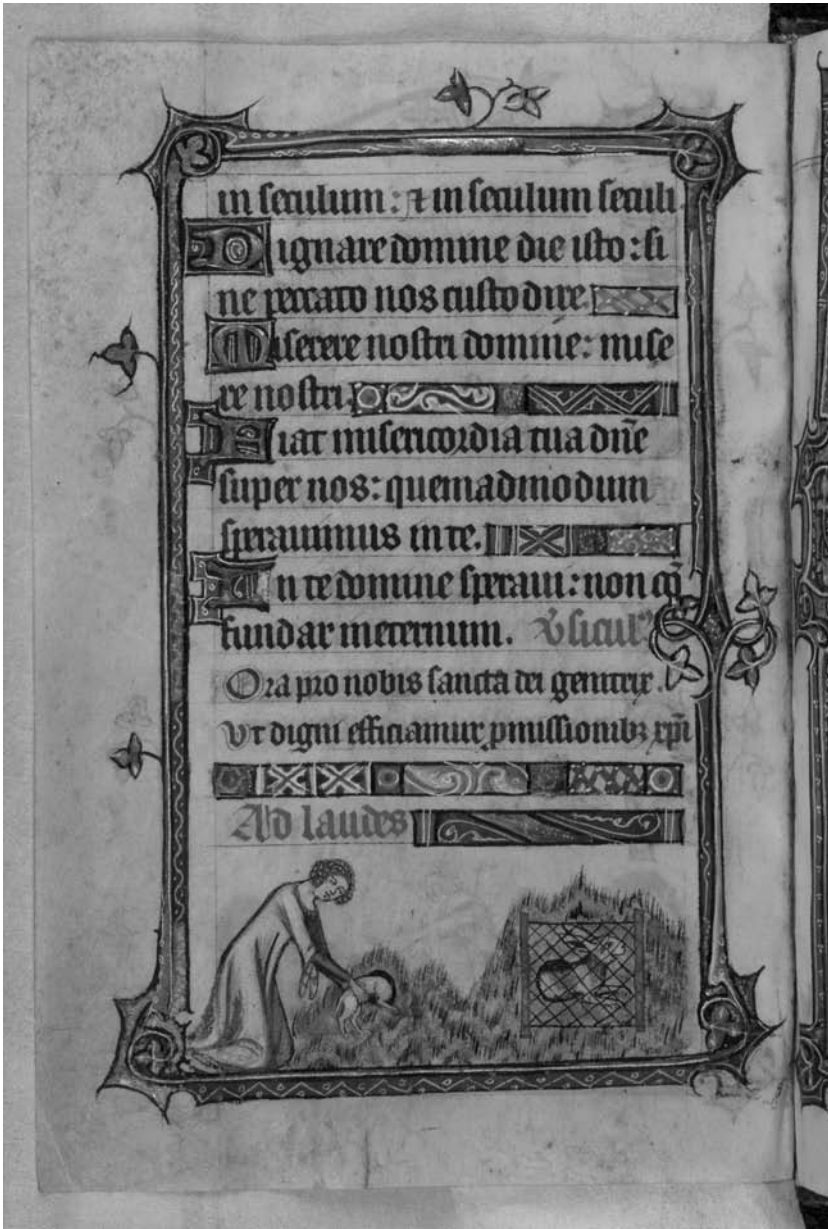 in seculum: ⁊ in seculum seculi.
Dignare domine die isto: si
ne peccato nos custodire.
Miserere nostri domine: mise
re nostri.
Fiat misericordia tua dñe
super nos: quemadmodum
sperauimus in te.
In te domine speraui: non cō
fundar in eternum. v̄sicul᷒
Ora pro nobis sancta dei genitrix.
Vt digni efficiamur ꝓmissionibꝫ xp̄i
Ad laudes